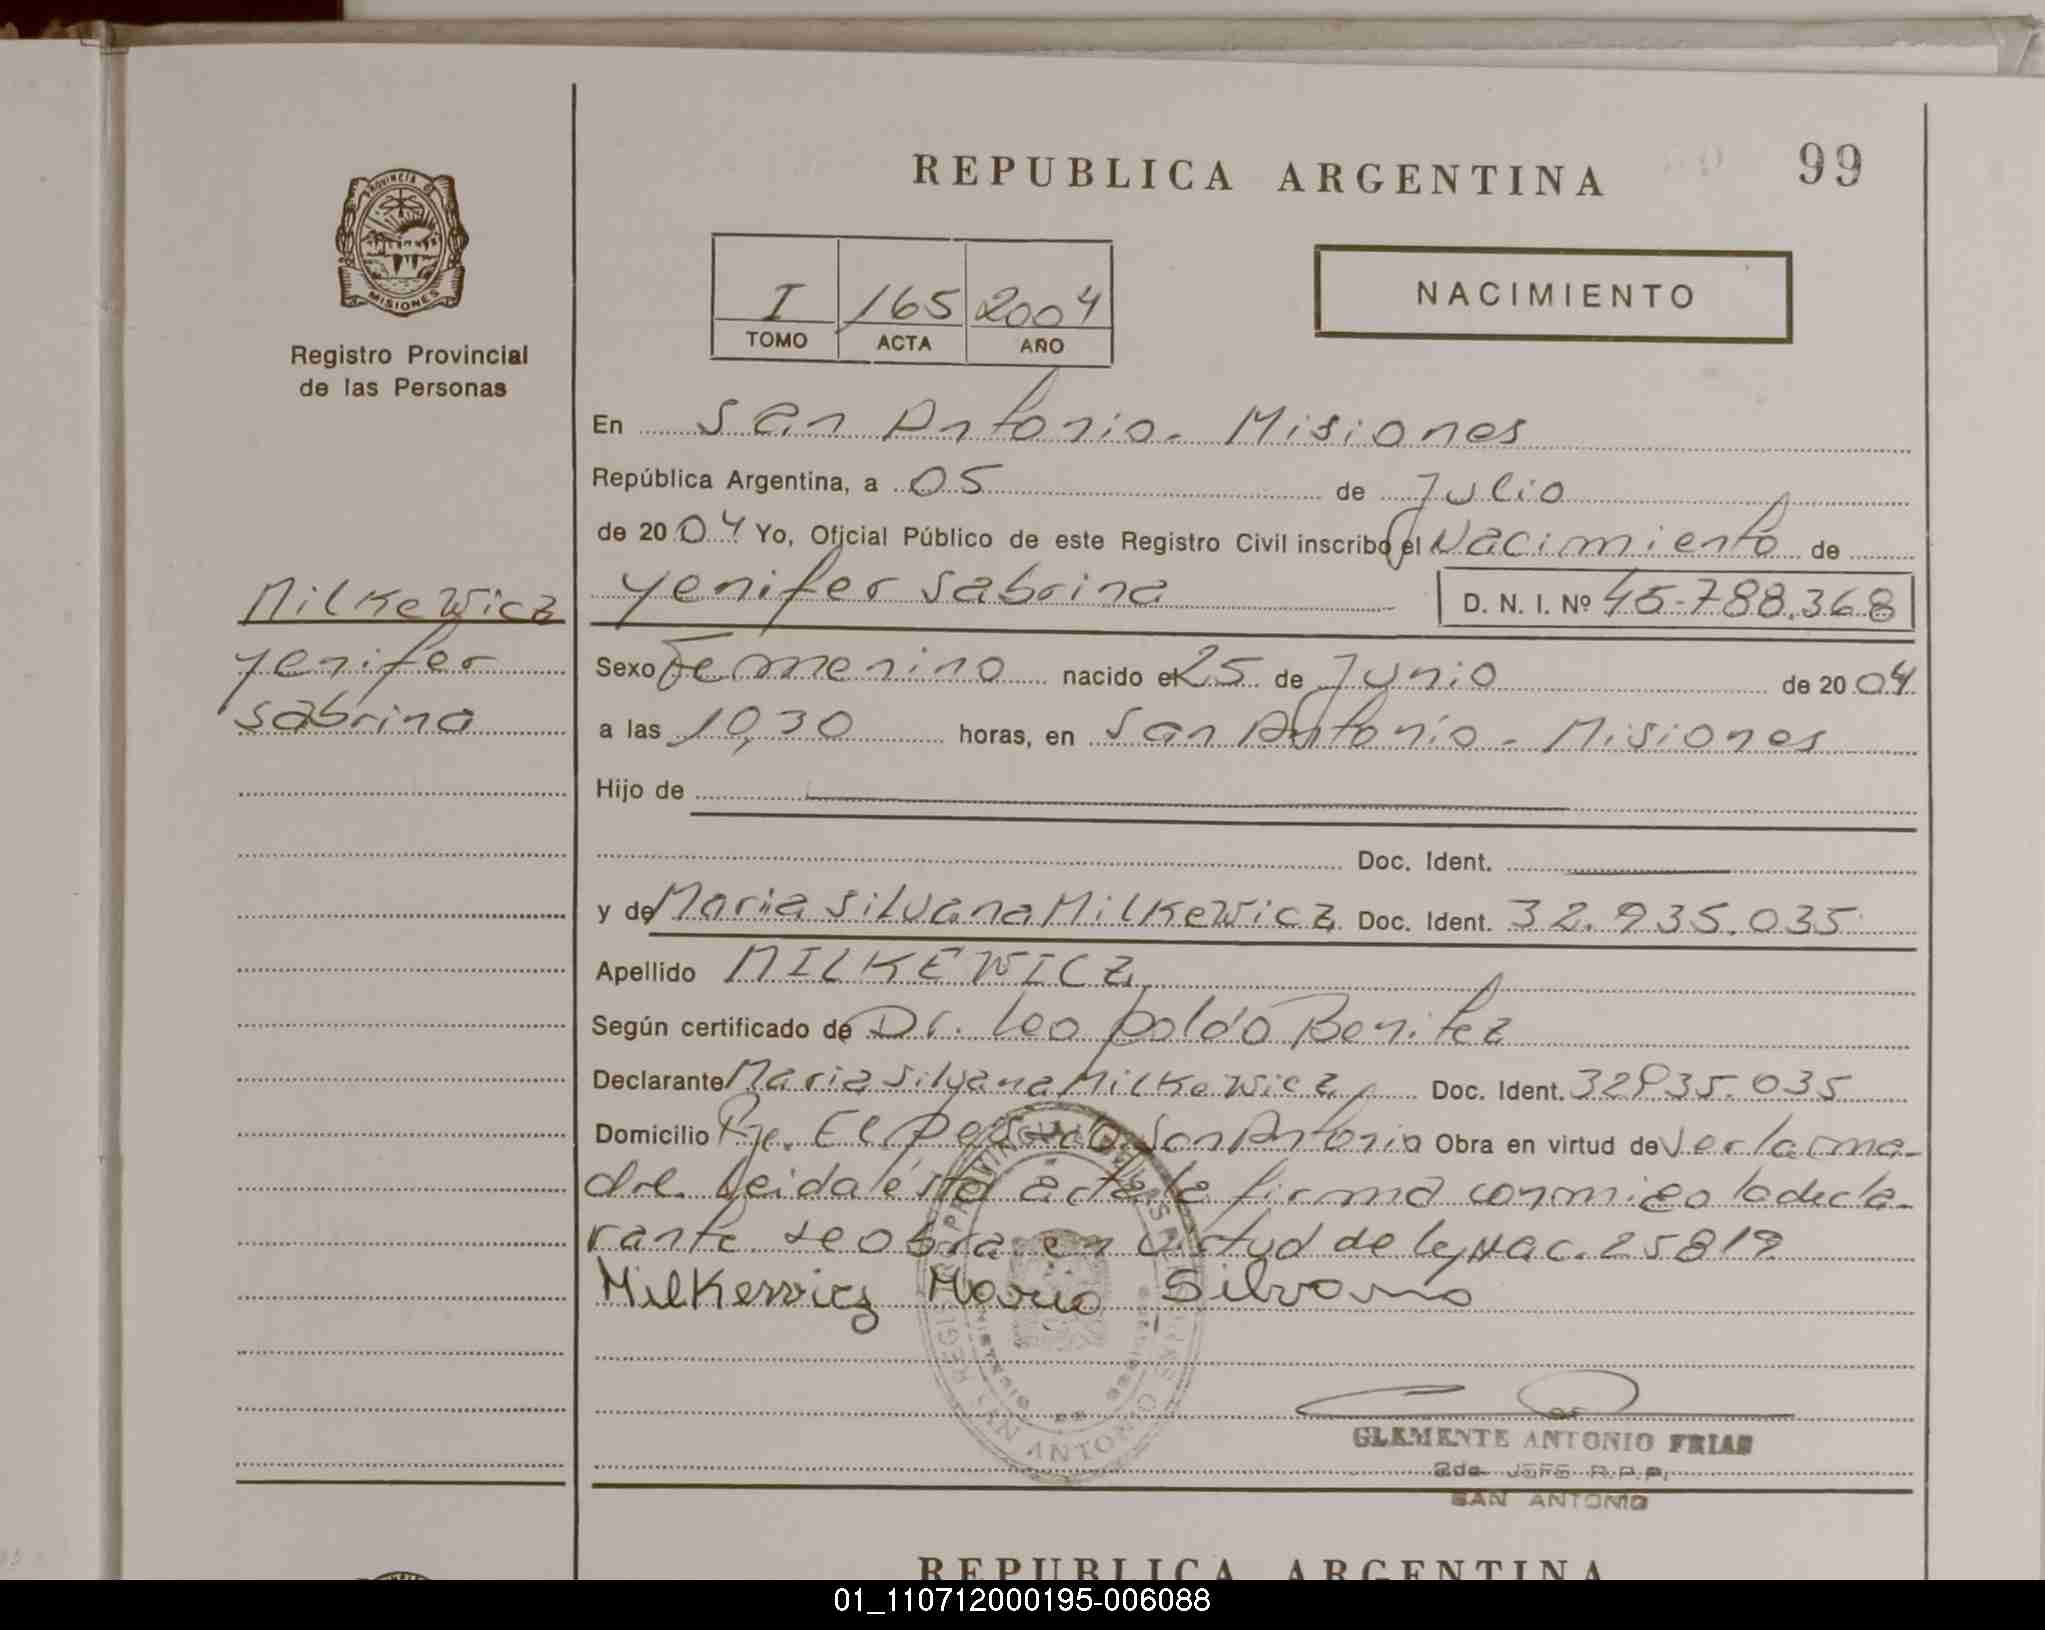 REPUBLICA ARGENTINA
99
PROVINCIA DE
MISIONES
Registro Provincial
de las Personas
I 165 2004
TOMO ACTA AÑO
NACIMIENTO
En San Antonio. Misiones
República Argentina, a 05 de Julio
de 2004 Yo, Oficial Público de este Registro Civil inscribo el Nacimiento de
Yenifer Sabrina D. N. I. Nº 45.788.368
Milkewicz
Yenifer
Sabrina
Sexo Femenino nacido el 25 de Junio de 2004
a las 10,30 horas, en San Antonio - Misiones
Hijo de
Doc. Ident.
y de Maria Silvana Milkewicz Doc. Ident. 32.935.035
Apellido MILKEWICZ
Según certificado de Dr. Leopoldo Benitez
Declarante Maria Silvana Milkewicz Doc. Ident. 32935.035
Domicilio Pje. El San Antonio Obra en virtud de ser la ma-
dre. Leida ésta acta la firma conmigo la decla-
rante. se obra en virtud de ley Nac. 25819
Milkewicz Maria Silvana
SAN ANTONIO
CLEMENTE ANTONIO FRIAS
2do JEFE R.P.P.
SAN ANTONIO
REPUBLICA ARGENTINA
01_110712000195-006088